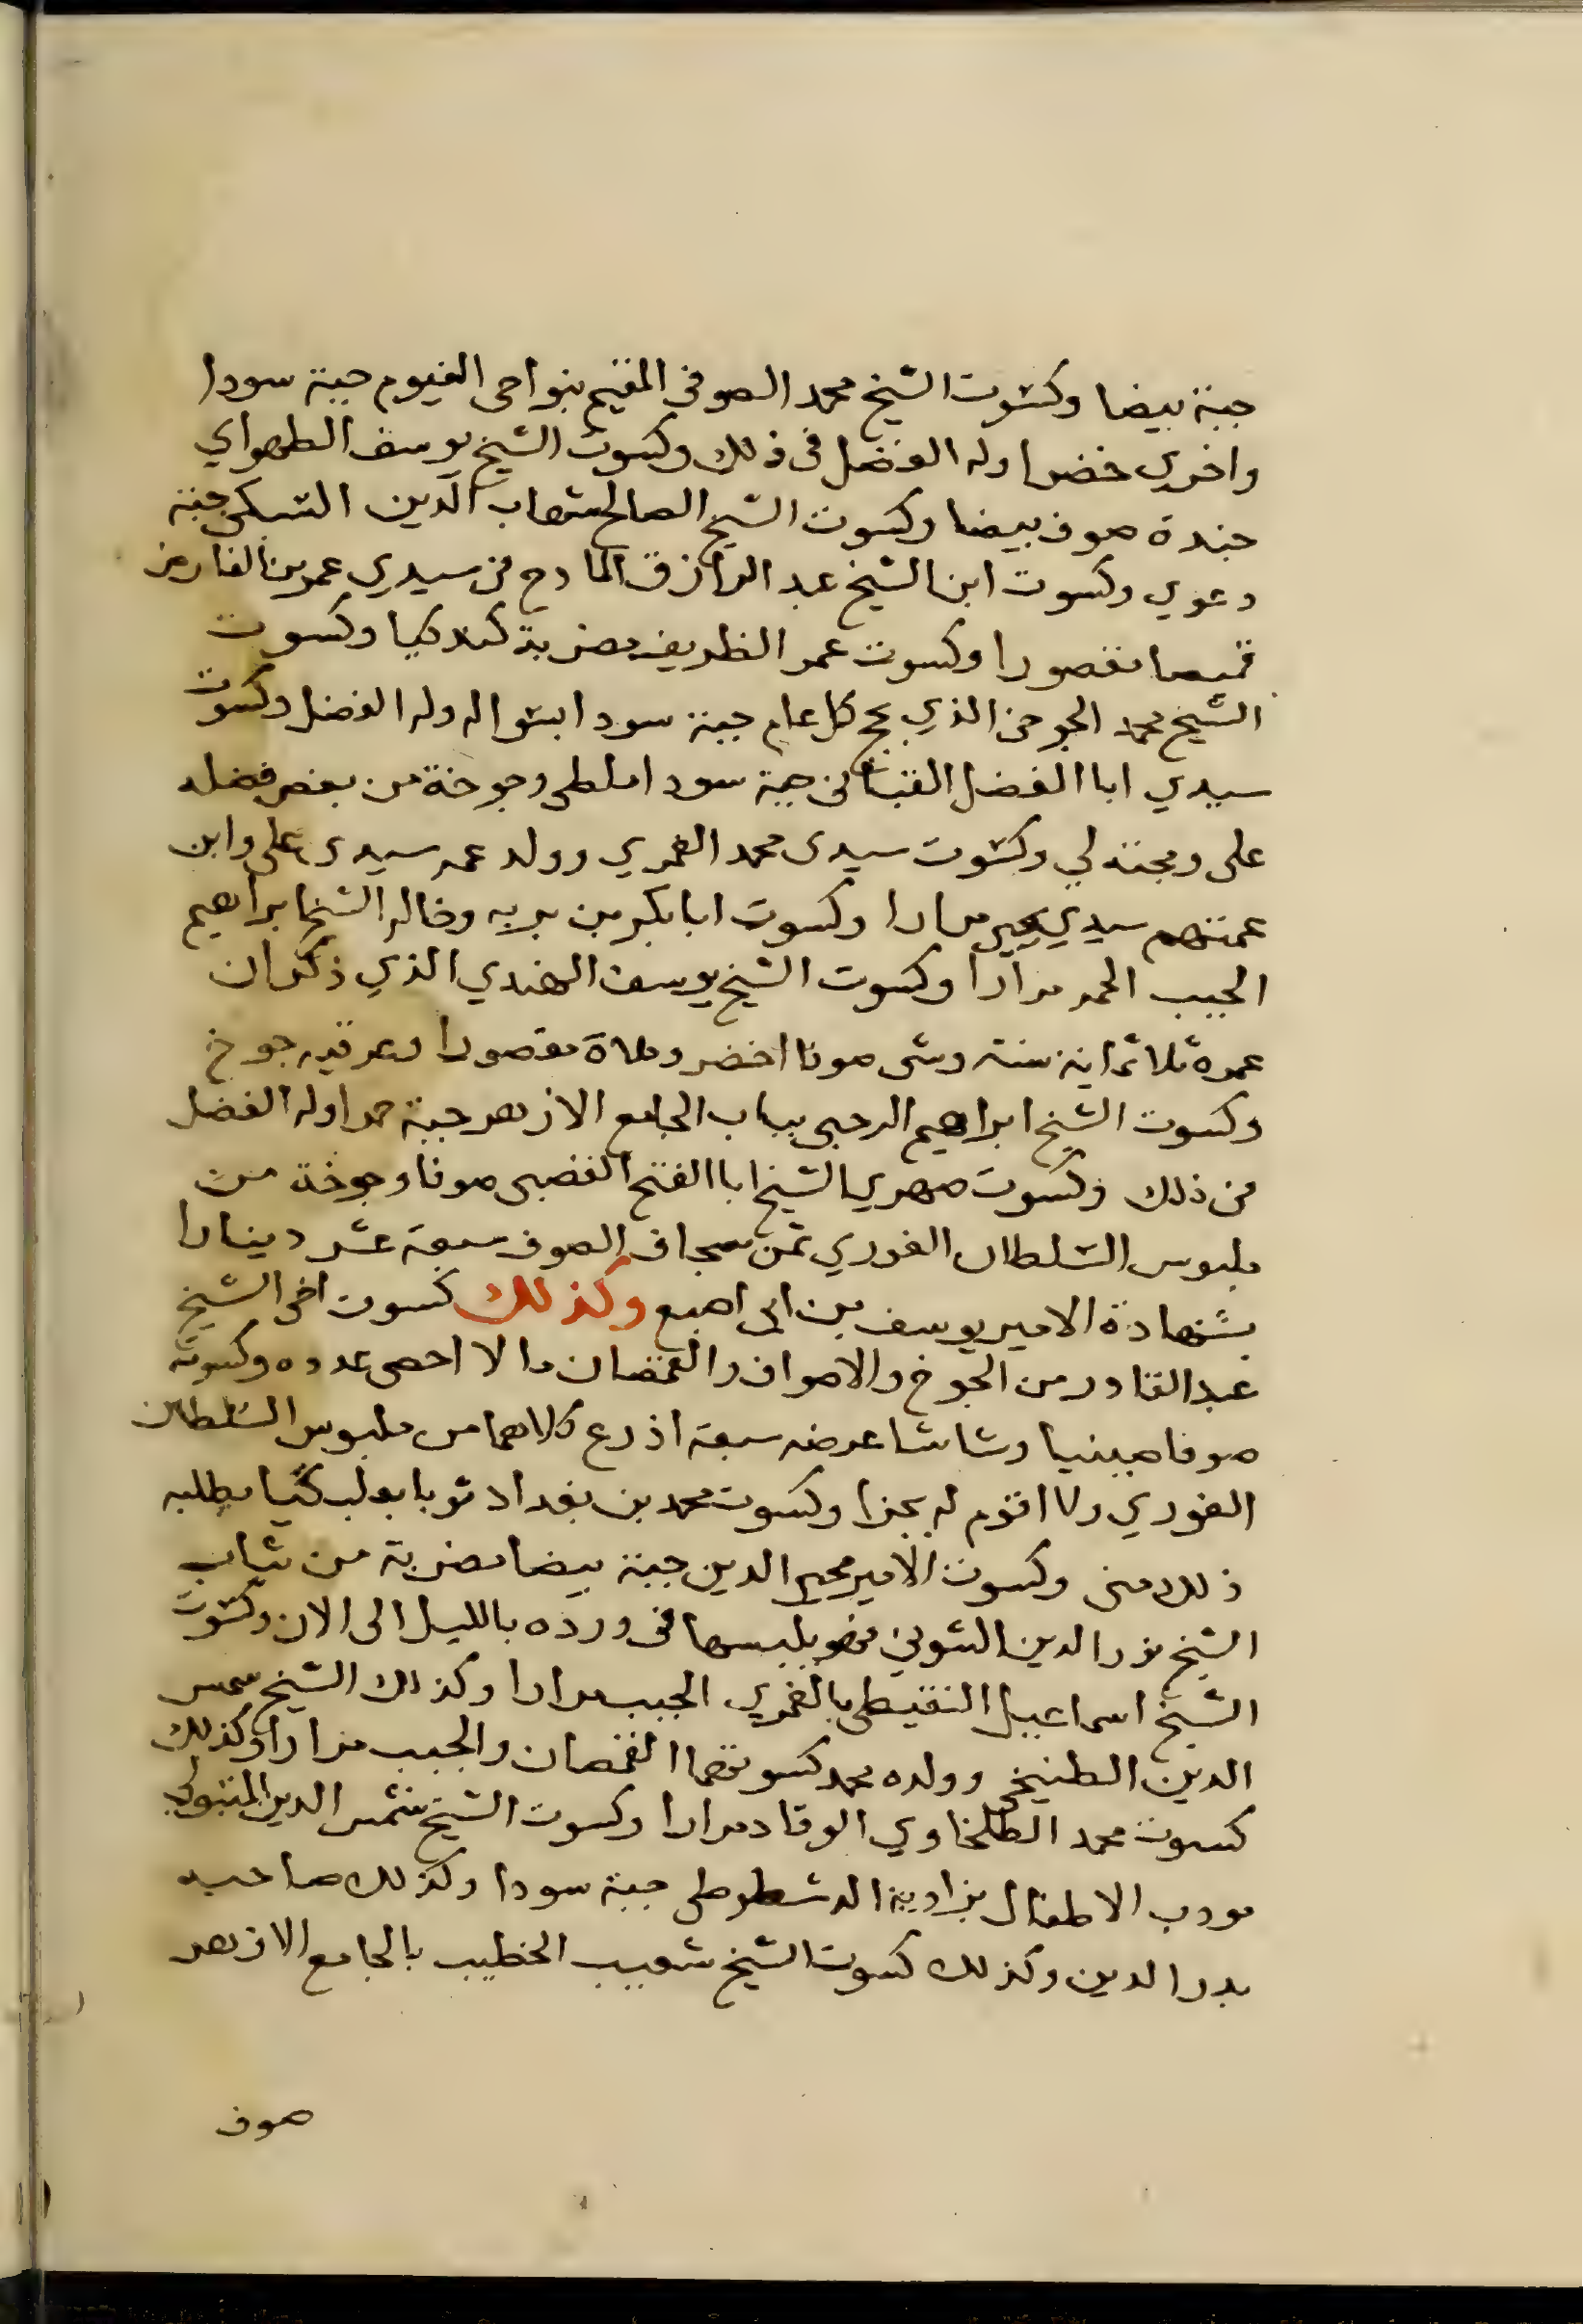 جبة بيضا وكسوت الشيخ محمد الصوفي المقيم بنواحى الفيوم جبة سودا
واخري خضرا وله الفضل فى ذلك وكسوت الشيخ يوسف الطهواي
جندة صوف بيضا وكسوت الشيخ الصالح شهاب الدين السبكى جبة
دعوي وكسوت ابن الشيخ عبد الرازق المادح فى سيدي عمر بن الفارض
قميصا مقصورا وكسوت عمر الظريف مضربة كندكيا وكسوت
الشيخ محمد الجوخى الذي يحج كل عام جبة سودا بسواله وله الفضل وكسوت
سيدي ابا الفضل القبانى جبة سودا ملطى وجوخة من بعض فضله
على ومحبته لي وكسوت سيدى محمد الغمري وولد عمه سيدى على وابن
عمتهم سيدي يحيى مرارا وكسوت ابا بكر بن بريه وخاله الشيخ ابراهيم
الجبب الحمر مرارا وكسوت الشيخ يوسف الهندي الذي ذكر ان
عمره ثلاثماية سنة وشى صوفا اخضر وملاة مقصورا وعرقيه جوخ
وكسوت الشيخ ابراهيم الرحبى بباب الجامع الازهر جبة حمرا وله الفضل
فى ذلك وكسوت صهري الشيخ ابا الفتح القصبى صوفا وجوخة من
ملبوس السلطان الغوري ثمن سجاف الصوف سبعة عشر دينارا
بشهادة الامير يوسف بن ابى اصبع وكذلك كسوت اخى الشيخ
عبد القادر من الجوخ والاصواف والقمصان ما لا احصى عدده وكسوته
صوفا صينيا وشاشا عرضه سبعة اذرع كلاهما من ملبوس السلطان
الغوري ولا اقوم له بجزا وكسوت محمد بن بغداد ثوبا بعلبكيا بطلبه
ذلك منى وكسوت الامير محيى الدين جبة بيضا مضربة من ثياب
الشيخ نور الدين الشونى فهو يلبسها فى ورده بالليل الى الان وكسوت
الشيخ اسماعيل النقيطى بالغمري الجبب مرارا وكذلك الشيخ شمس
الدين الطنيخى وولده محمد كسوتهما القمصان والجبب مرارا وكذلك
كسوت محمد الطلخاوي الوقاد مرارا وكسوت الشيخ شمس الدين المتبولى
مودب الاطفال بزاوية الدشطوطى جبة سودا وكذلك صاحبه
بدر الدين وكذلك كسوت الشيخ شعيب الخطيب بالجامع الازهر
صوف